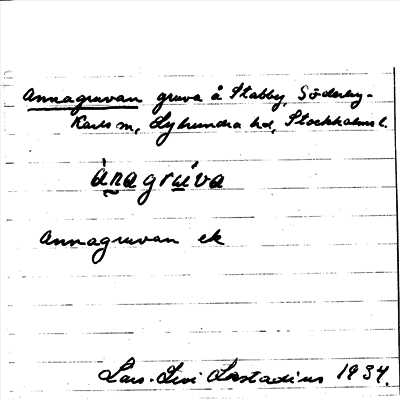 Annagruvan gruva å Stabby, Söderby-
Karls sn, Lyhundra hd, Stockholms l.
ànagrúva
Annagruvan ek
Lars-Levi Læstadius 1934.